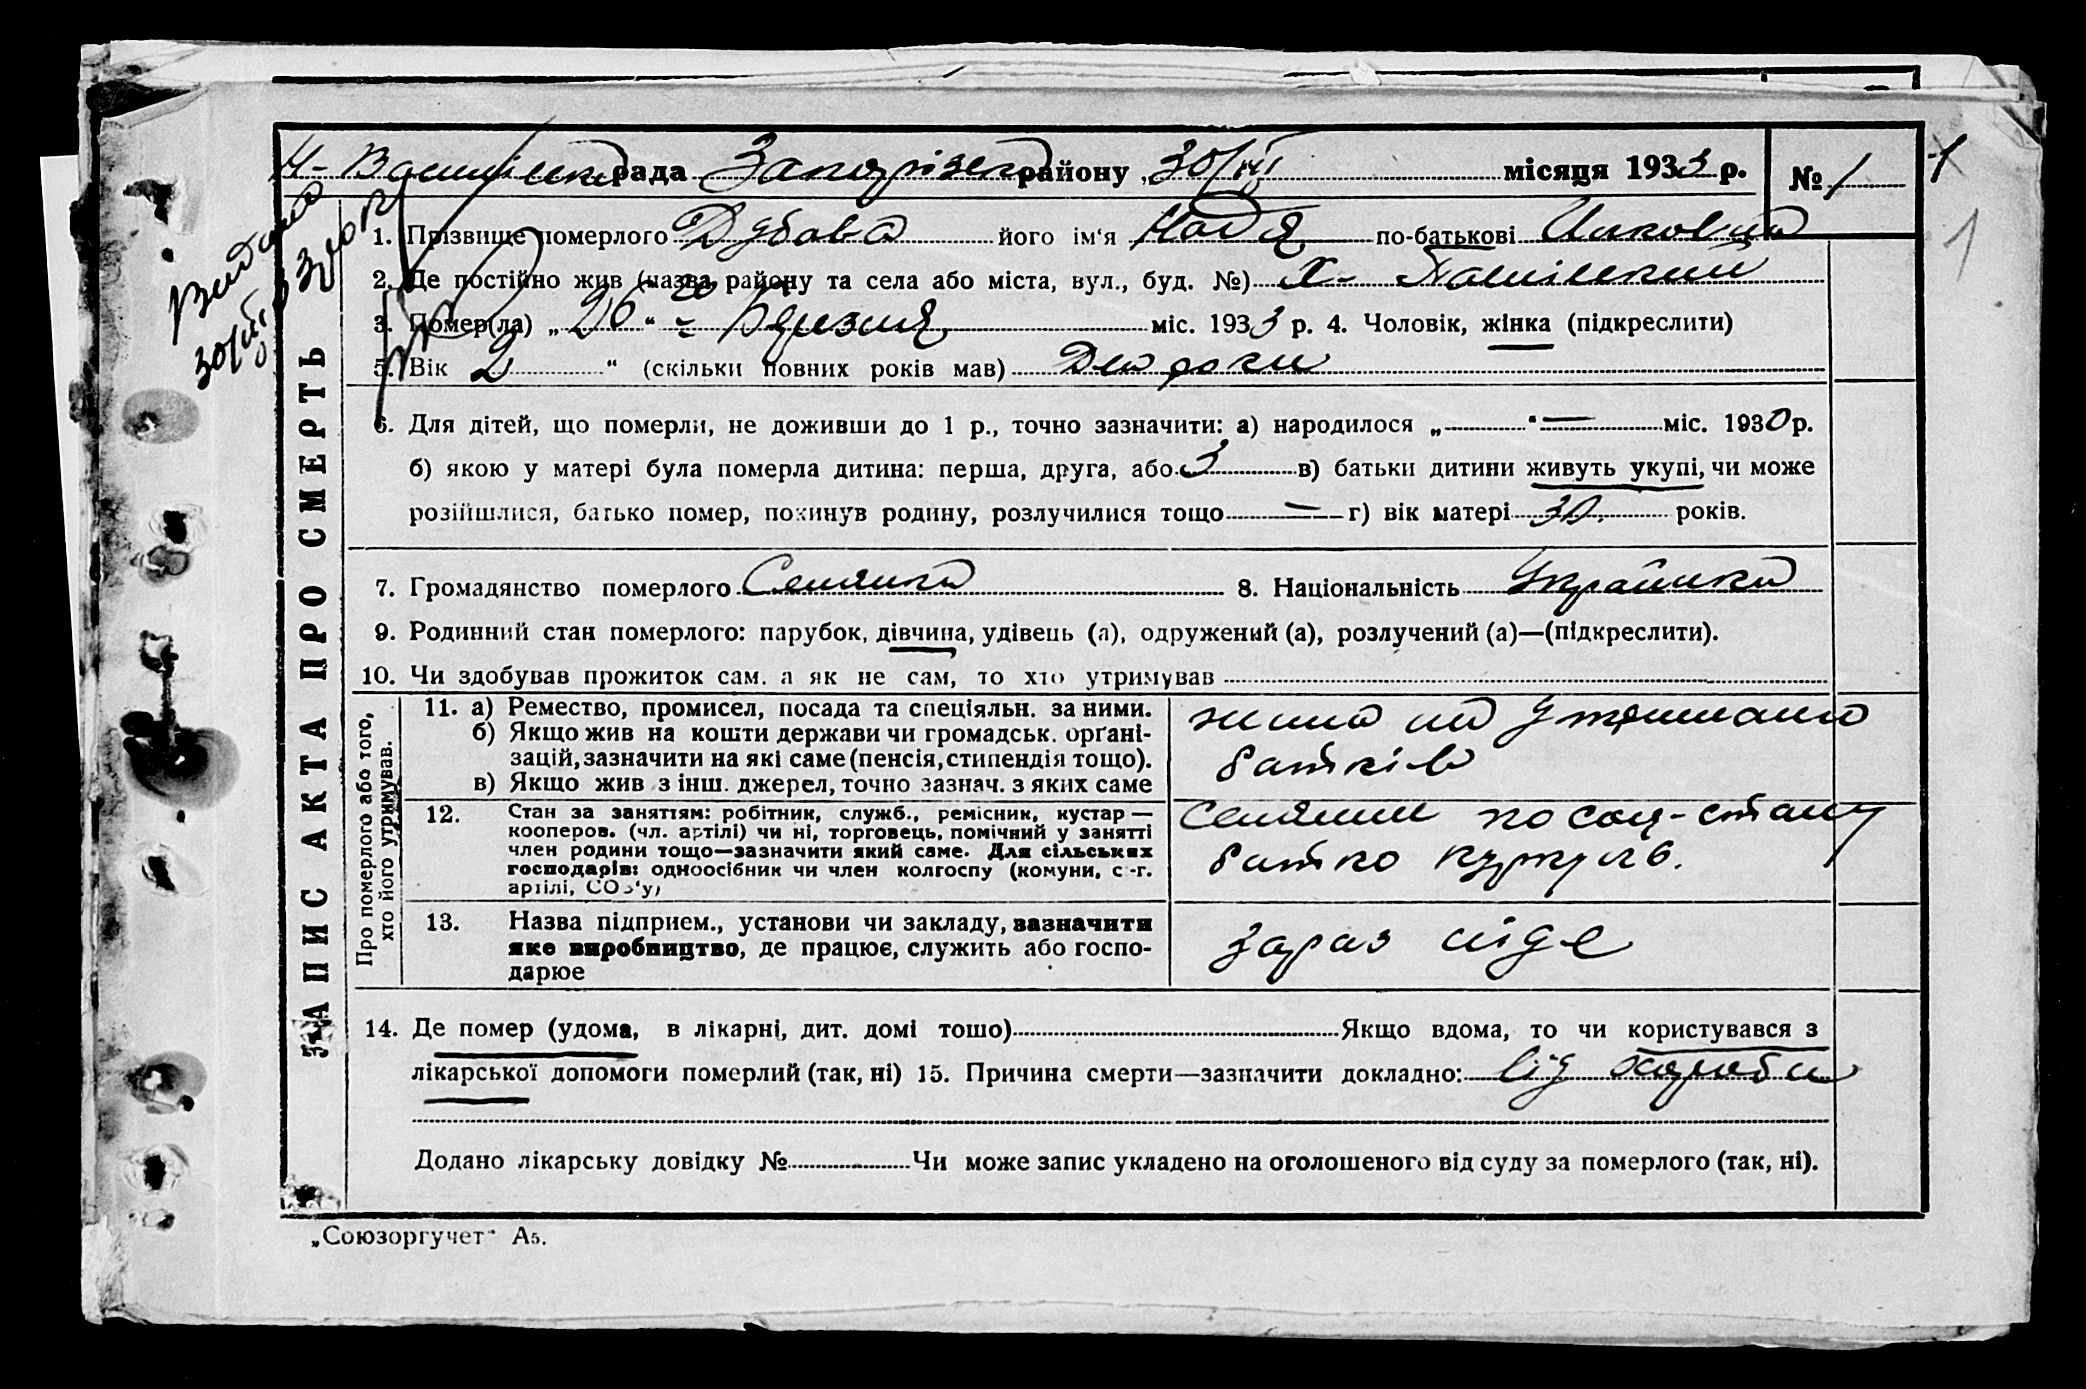 рада Запорізьк району „30/III місяця 1933 р. № 1
1
1
Видана
30/III 33 рок
ЗАПИС АКТА ПРО СМЕРТЬ
1. Прізвище померлого Дубова його ім'я Надя по-батькові
2. Де постійно жив (назва району та села або міста, вул., буд. №) Х-
3. Помер(ла) „26“ го Березня міс. 1933 р. 4. Чоловік, жінка (підкреслити)
5. Вік 2 “ (скільки повних років мав) Два роки
6. Для дітей, що померли, не доживши до 1 р., точно зазначити: а) народилося „ “ — міс. 1930 р.
б) якою у матері була померла дитина: перша, друга, або 3 в) батьки дитини живуть укупі, чи може
розійшлися, батько помер, покинув родину, розлучилися тощо — г) вік матері 30. років.
7. Громадянство померлого Селянка 8. Національність Українка
9. Родинний стан померлого: парубок, дівчина, удівець (а), одружений (а), розлучений (а)—(підкреслити).
10. Чи здобував прожиток сам. а як не сам, то хто утримував
Про померлого або того,
хто його утримував.
11. а) Ремество, промисел, посада та спеціяльн. за ними.
б) Якщо жив на кошти держави чи громадськ. орґані-
зацій, зазначити на які саме (пенсія, стипендія тощо).
в) Якщо жив з інш. джерел, точно зазнач. з яких саме
жила на утриманю
батків
12. Стан за заняттям: робітник, служб., ремісник, кустар —
кооперов. (чл. артілі) чи ні, торговець, помічний у занятті
член родини тощо—зазначити який саме. Для сільських
господарів: одноосібник чи член колгоспу (комуни, с.-г.
артілі, СОЗ'у)
селянин по соц-стану
батко куркуль.
13. Назва підприєм., установи чи закладу, зазначити
яке виробництво, де працює, служить або госпо-
дарює
зараз ніде
14. Де помер (удома, в лікарні, дит. домі тошо) Якщо вдома, то чи користувався з
лікарської допомоги померлий (так, ні) 15. Причина смерти—зазначити докладно: від хороби
Додано лікарську довідку № Чи може запис укладено на оголошеного від суду за померлого (так, ні).
„Союзоргучет“ А5.